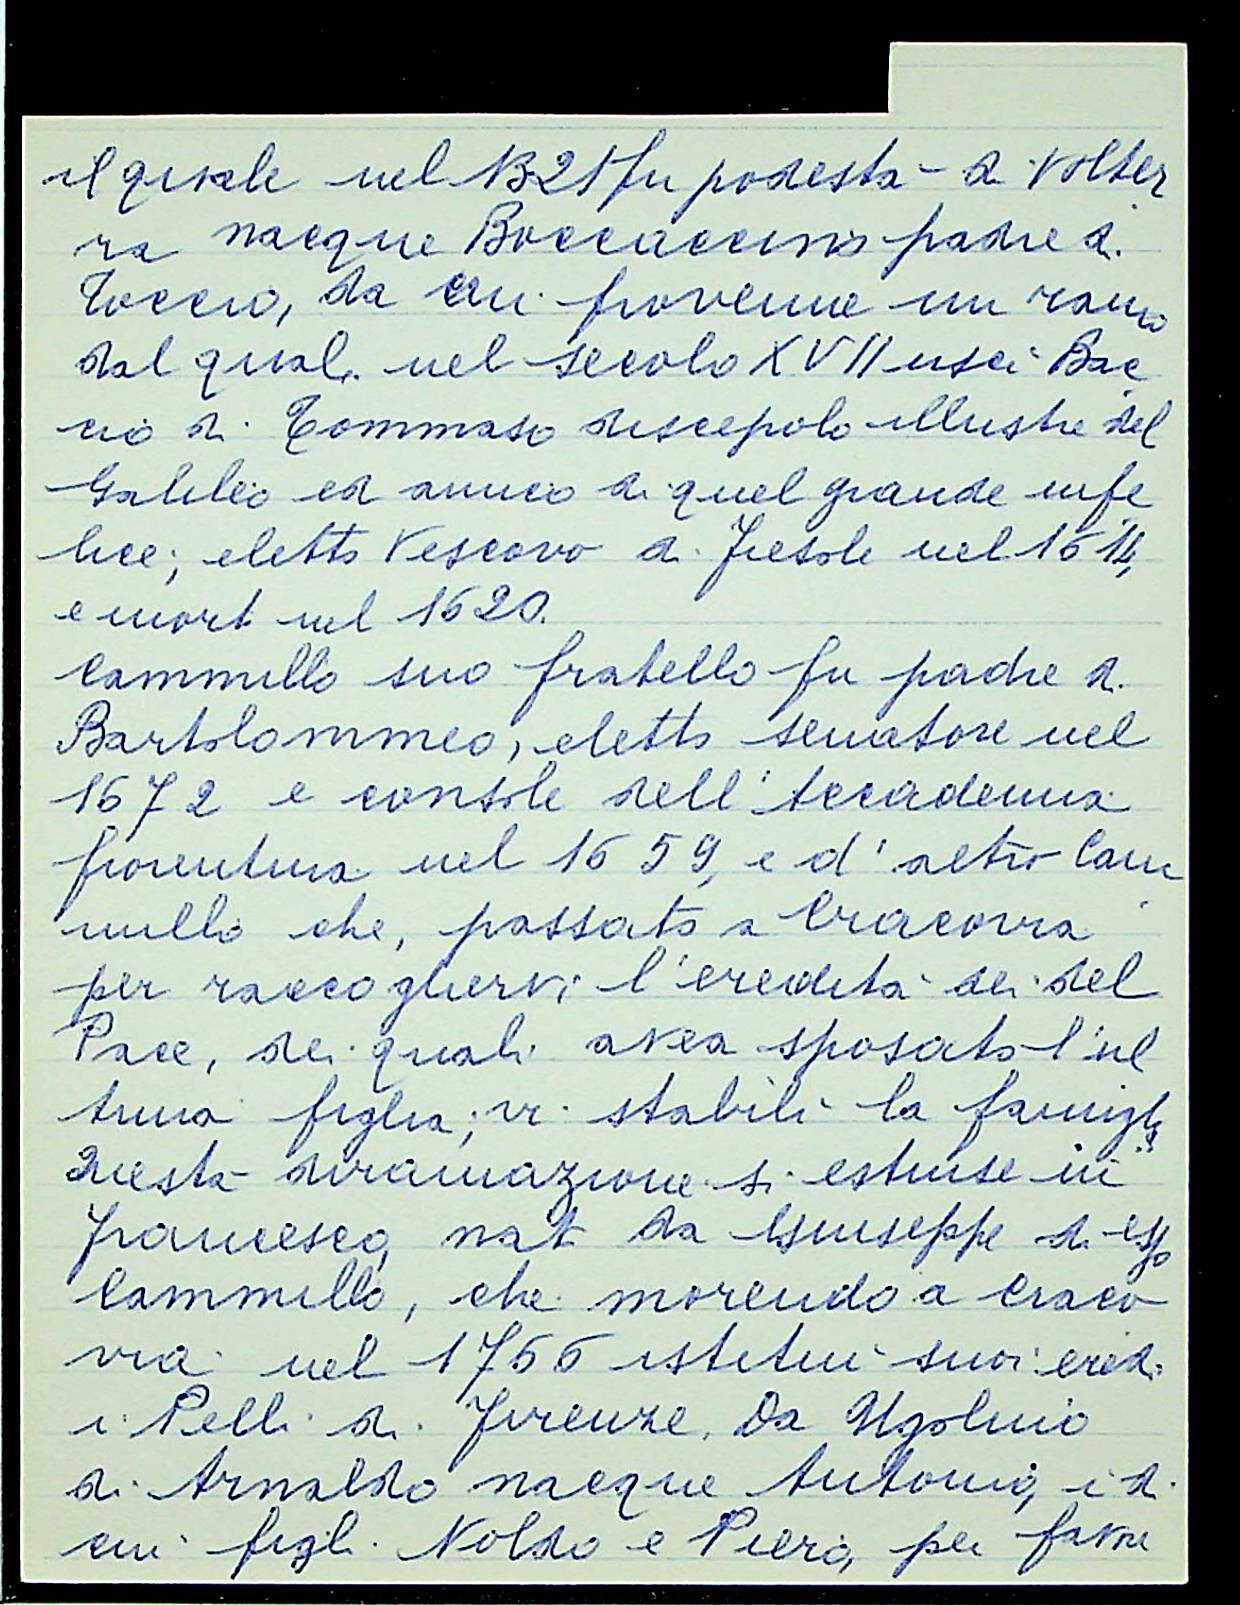 il quale nel 1321 fu podestà di Volter
ra nacque Boccaccino padre di
Toccio, da cui provenne un ramo
dal quale nel secolo XVII uscì Bac
cio di Tommaso discepolo illustre del
Galileo ed amico di quel grande infe
lice; eletto Vescovo di Fiesole nel 1614,
e morì nel 1620.
Cammillo suo fratello fu padre di
Bartolommeo, eletto senatore nel
1672 e console dell'Accademia
fiorentina nel 1659, e d'altro Cam
millo che, passato a Cracovia
per raccogliervi l'eredità dei del
Pace, dei quali avea sposato l'ul
tima figlia; vi stabilì la famiglia
Questa diramazione si estinse in
Francesco, nato da Giuseppe di esso
Cammillo, che morendo a Craco
via nel 1766 istituì suoi eredi
i Pelli di Firenze. Da Ugolino
di Arnaldo nacque Antonio, i di
cui figli Noldo e Piero, per favore